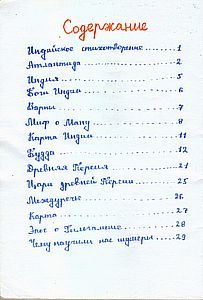 Содержание
Индийское стихотворение ........ 1
Атлантида ........ 2
Индия ........ 5
Боги Индии ........ 6
Варны ........ 7
Миф о Ману ........ 8
Карта Индии ........ 11
Будда ........ 12
Древняя Персия ........ 21
Цари древней Персии ........ 25
Междуречье ........ 26
Карта ........ 27
Эпос о Гильгамеше ........ 28
Чему научили нас шумеры ........ 29